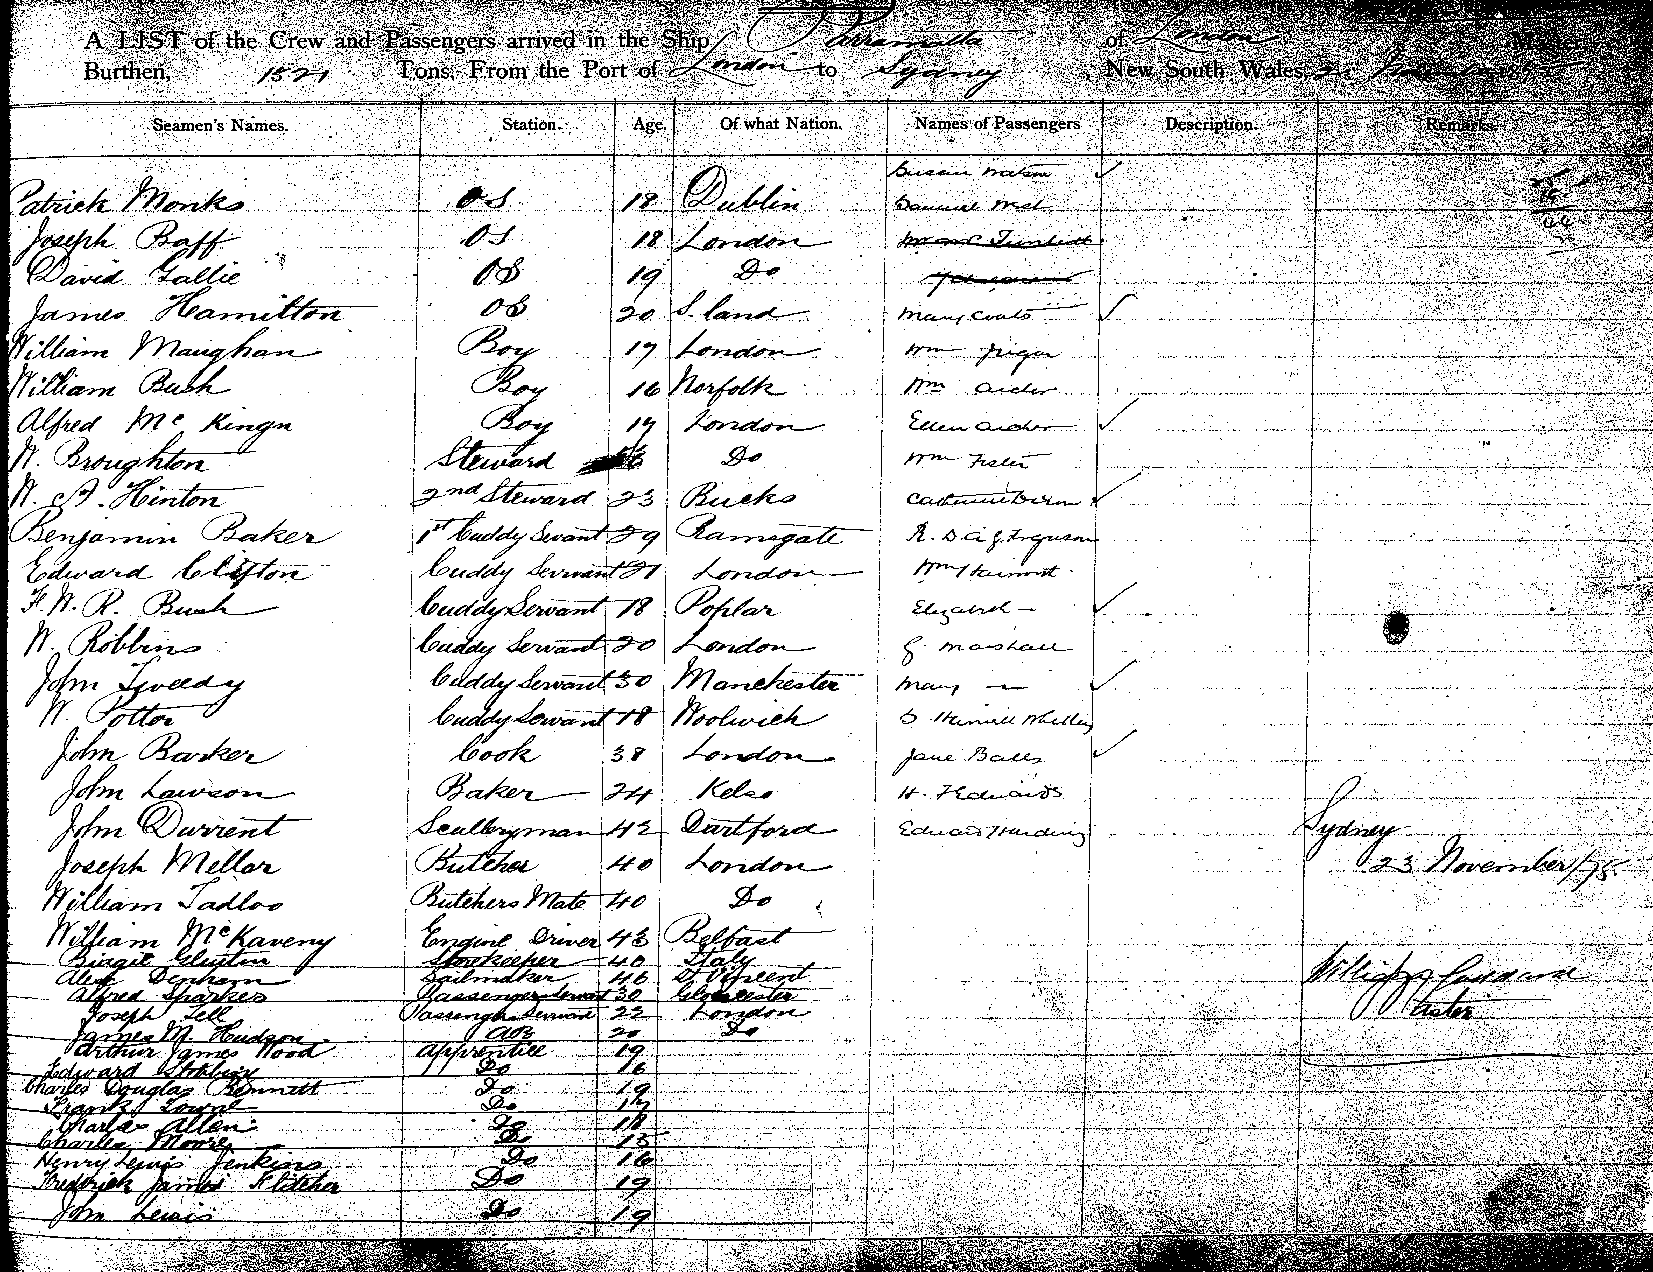 A LIST of the Crew and Passengers arrived in the Ship Parramatta of London
Burthen, 1521 Tons, From the Port of London to Sydney New South Wales,
Seamen's Names. Station. Age. Of what Nation. Names of Passengers Description. Remarks.
Susan Watson ✓
Patrick Monks OS 18 Dublin Samuel West
Joseph Baff OS 18 London
David Gallie OS 19 Do
James Hamilton OS 20 S.land Mary Coats ✓
William Maughan Boy 17 London Wm
William Bush Boy 16 Norfolk Wm Archer
Alfred Mc Kingn Boy 17 London Ellen Archer ✓
W. Broughton Steward Do Wm
W. A. Hinton 2nd Steward 23 Bucks Catherine Dixon ✓
Benjamin Baker 1st Cuddy Sevant 29 Ramsgate R. D a g Ferguson
Edward Clifton Cuddy Servant 21 London Wm
F. W. R. Bush Cuddy Servant 18 Poplar Elizabeth — ✓
W. Robbins Cuddy Servant 20 London G Marshall
John Tweedy Cuddy Servant 30 Manchester Mary — ✓
W. Potter Cuddy Servant 18 Woolwich
John Barker Cook 38 London Jane Balls ✓
John Lawson Baker 24 Kelso H. F Edwards
John Durrent Scullery man 42 Dartford Edward Harding Sydney
Joseph Mellar Butcher 40 London 23 November /75.
William Tadloo Butchers Mate 40 Do
William McKaveny Engine Driver 43 Belfast
Storekeeper 40 Italy
Alex Denham Sailmaker 46 St Vincent
Alfred Sparkes Passengers Servant 30 Gloucester
Joseph Tell Passengers Servant 22 London
James M. Hudson AB 20 Do
Arthur James Wood Apprentice 19
Edward Do 16
Charles Douglas Bennett Do 19
Frank Towne Do 17
Charles Allen Do 18
Charles Moore Do 15
Henry Lewis Jenkins Do 16
Frederick James Fletcher Do 19
John Lewis Do 19